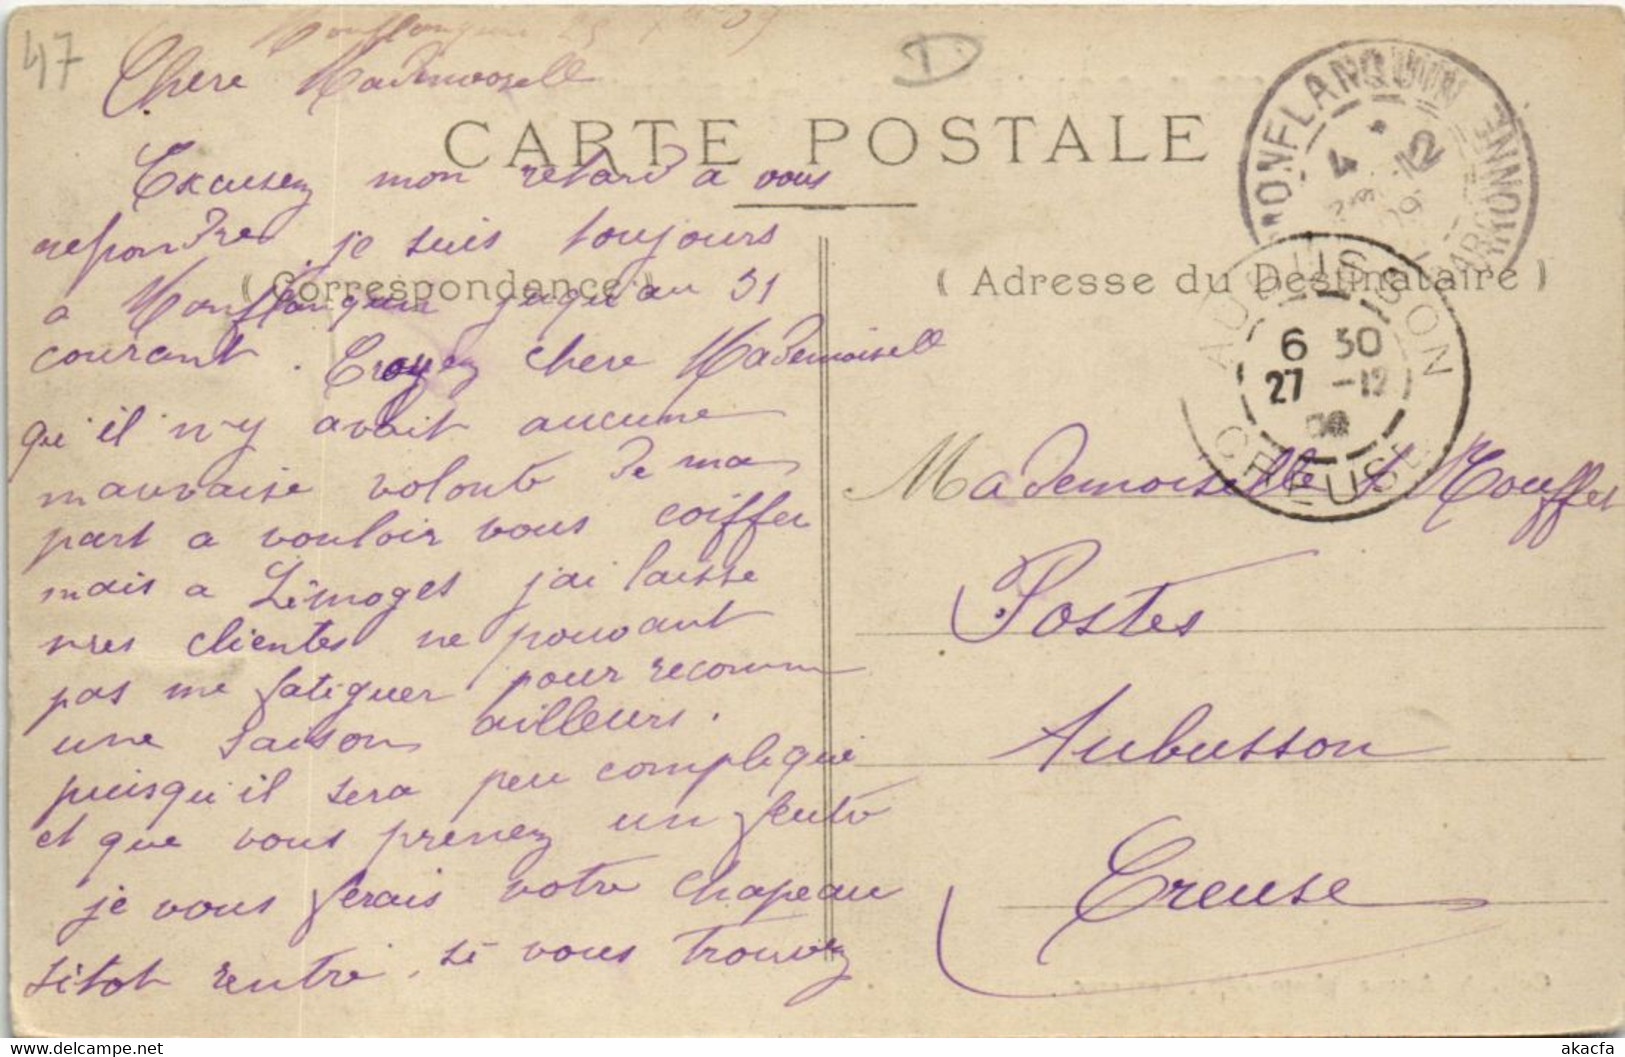 47
Monflanquin 25 Xbre 09
Chere Mademoisell
CARTE POSTALE
Excusez mon retard a vous
repondre, je suis toujours
(Correspondance)
a Monflanquin juqu'au 31
courant. Croyez chere Mademoisell
qu'il n'y avait aucune
mauvaise volonté de ma
part a vouloir vous coiffer
mais a Limoges j'ai laisse
mes clientes ne pouvant
pas me fatiguer pour recomm
une saison ailleurs.
puisqu'il sera peu compliqué
et que vous prenez un feutre
je vous ferais votre chapeau
sitot rentré, si vous trouvez
D
MONFLANQUIN
4 12
09
(Adresse du Destinataire)
AUBUSSON
6 30
27 -12
09
CREUSE
Mademoiselle Mouffet
Postes
Aubusson
Creuse
akacfa